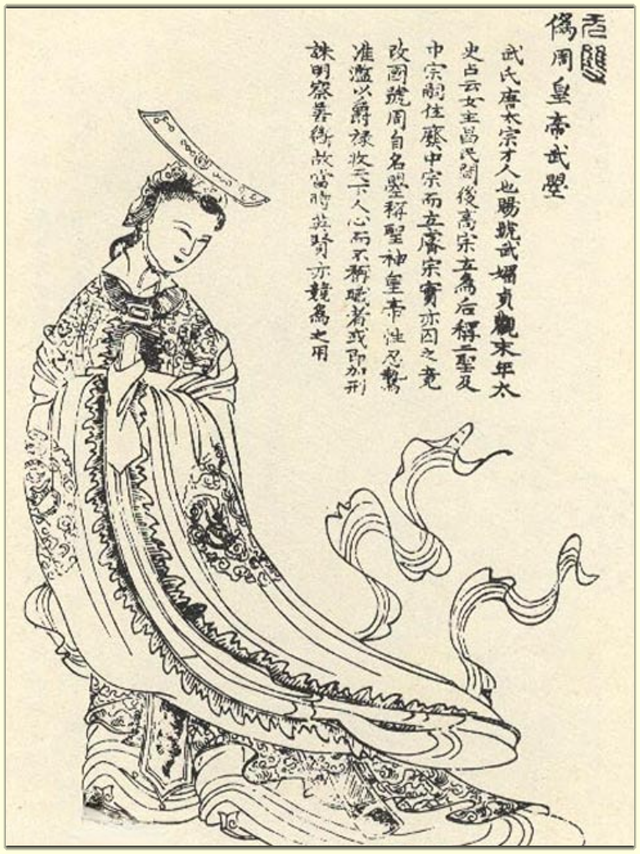 无雙
僞周皇帝武曌
武氏唐太宗才人也賜號武媚貞觀末年太
史占云女主昌民間後高宗立為后稱二聖及
中宗嗣位廢中宗而立睿宗實亦囚之竟
改國號周自名曌稱聖神皇帝性忍鷙
濫以爵祿收天下人心而不稱職者或即加刑
誅明察善故當時英賢亦競為之用